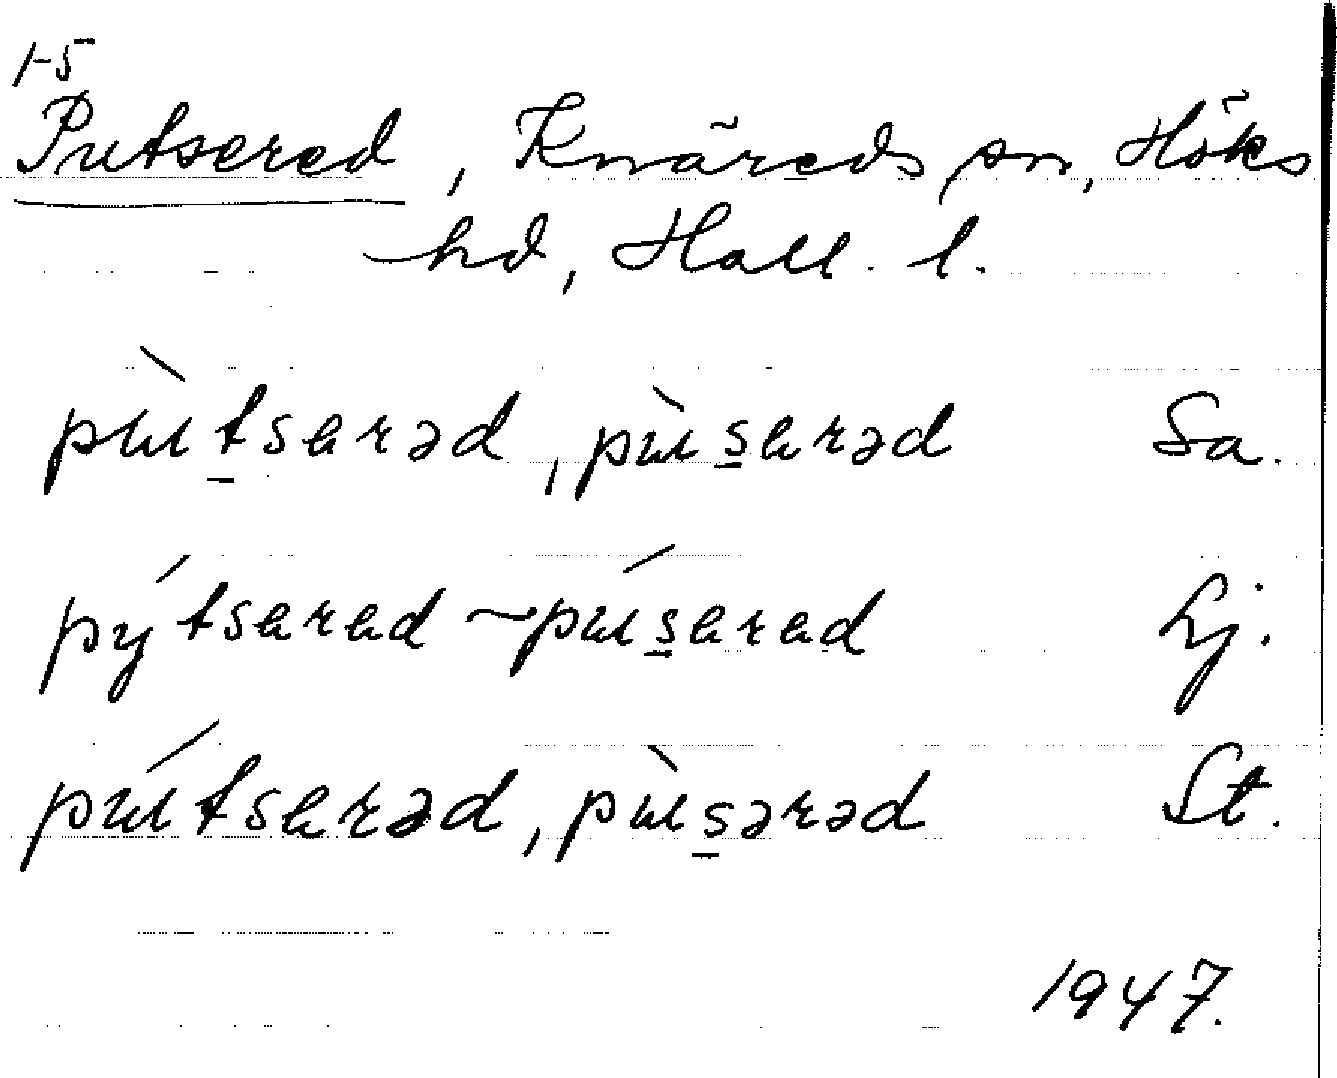 1-5
Putsered, Knäreds sn, Höks
hd, Hall. l.
pɯ̀t̠sɐrəd, pɯ̀s̠ɐrəd Sa.
pýtsɐrɐd ~ pɯ́s̠ɐrɐd Lj.
pɯ́tsɐrəd, pɯ̀s̠ərəd St.
1947.